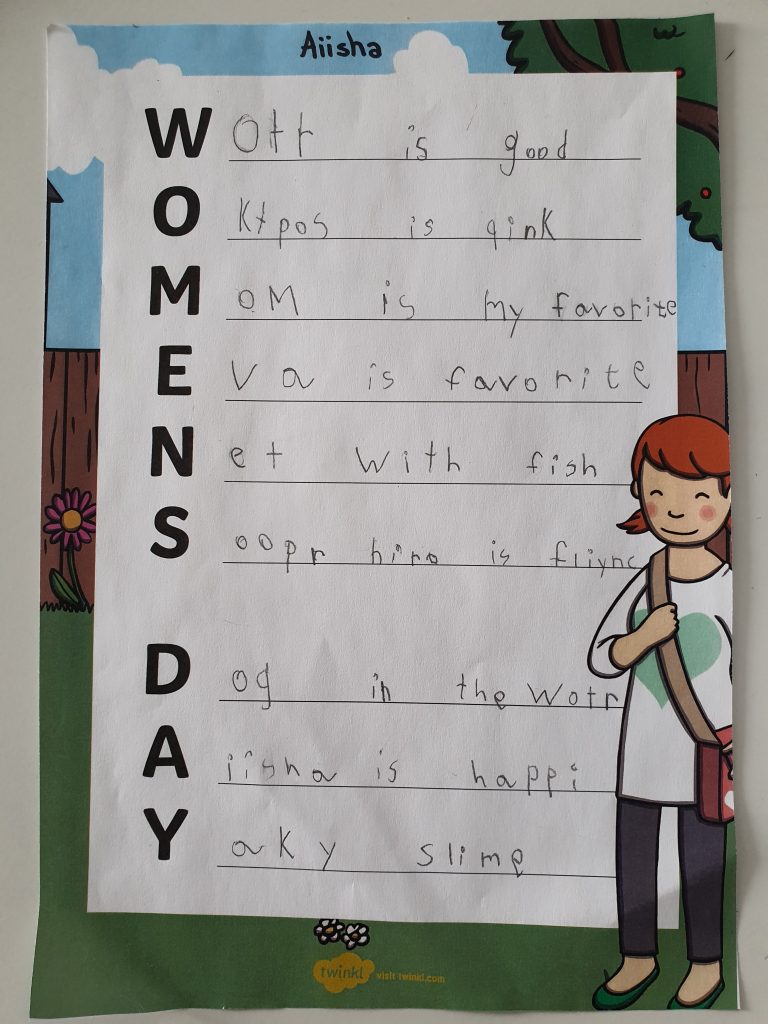 Aiisha
W Otr is good
O Ktpos is qink
M OM is my favorite
E Va is favorite
N et with fish
S oopr hiro is fliync
D og in the Wotr
A iisha is happi
Y aky slime
twinkl visit twinkl.com